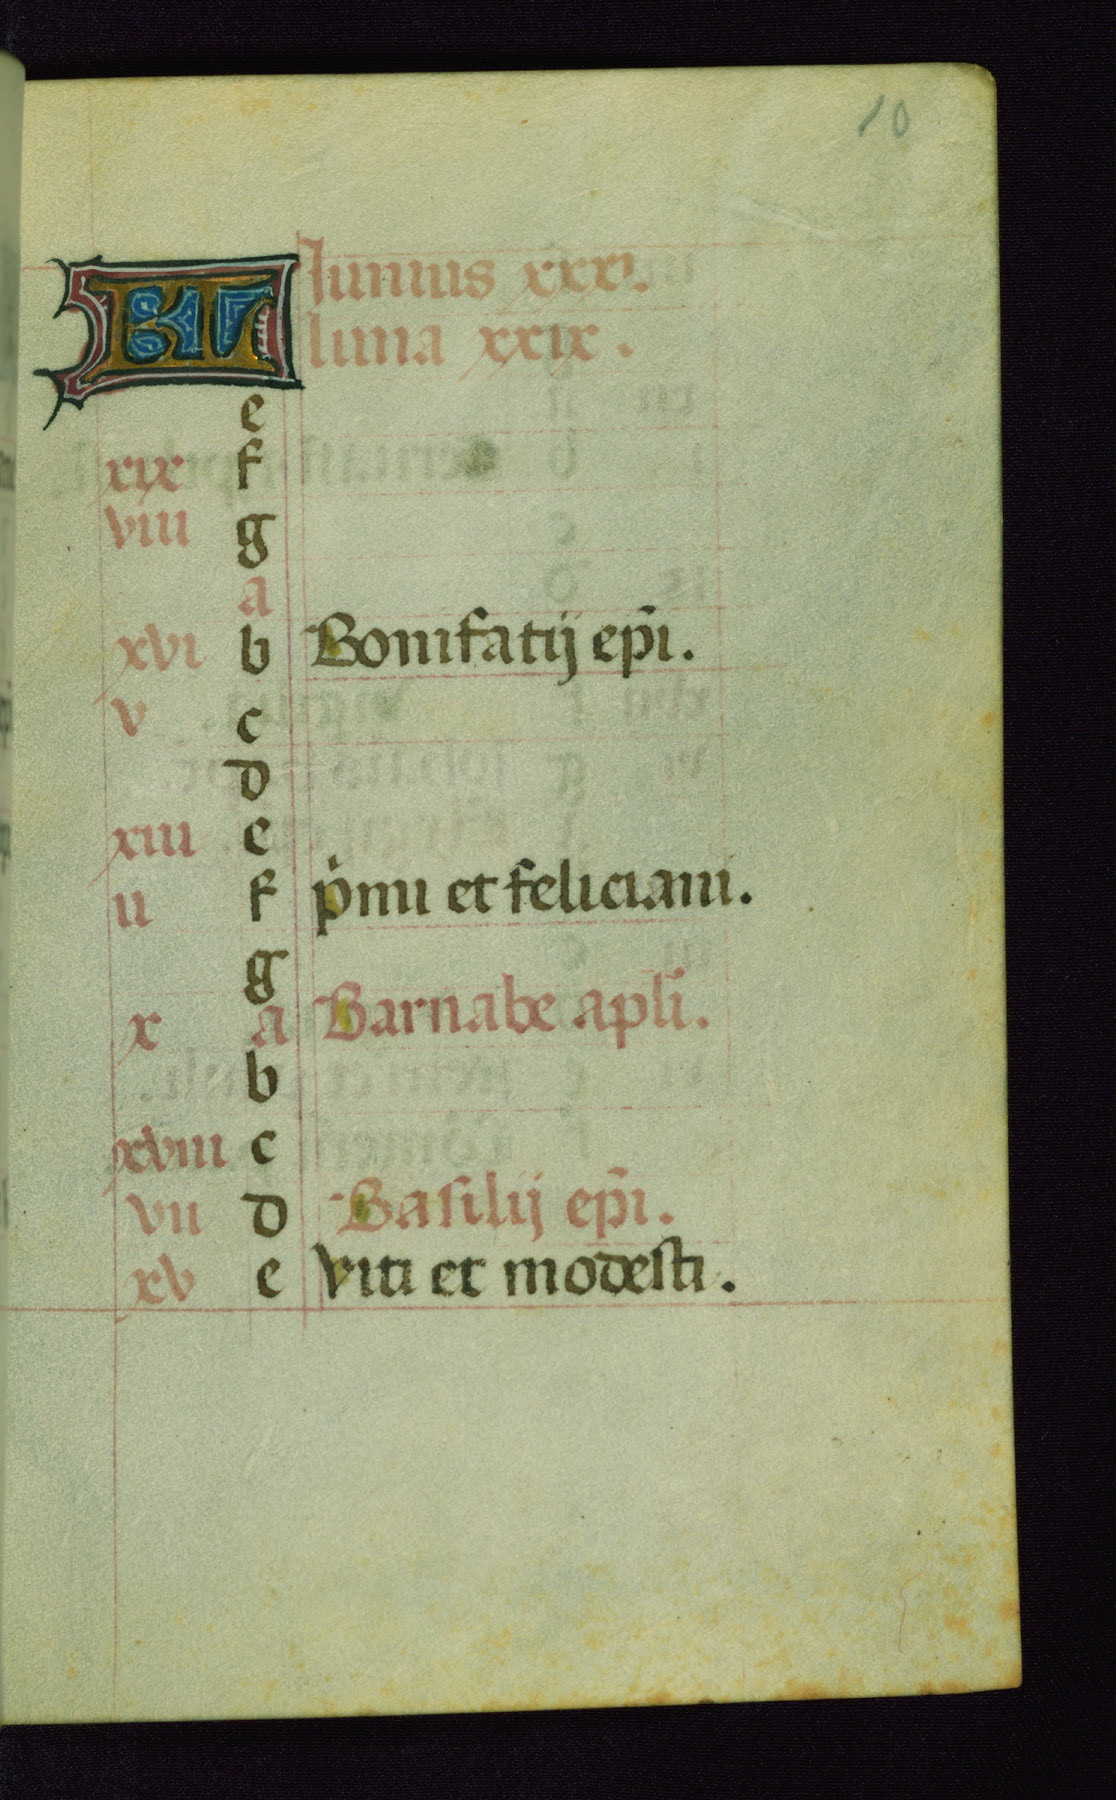 10
KL Iunius xxxi.
luna xxix.
e
xix f
viii g
a
xvi b Bonifatij ep̄i.
v c
d
xiii e
ii f pͥmi et feliciani.
g
x a Barnabe apl̄i.
b
xviii c
vii d Basilij ep̄i.
xv e Viti et modesti.